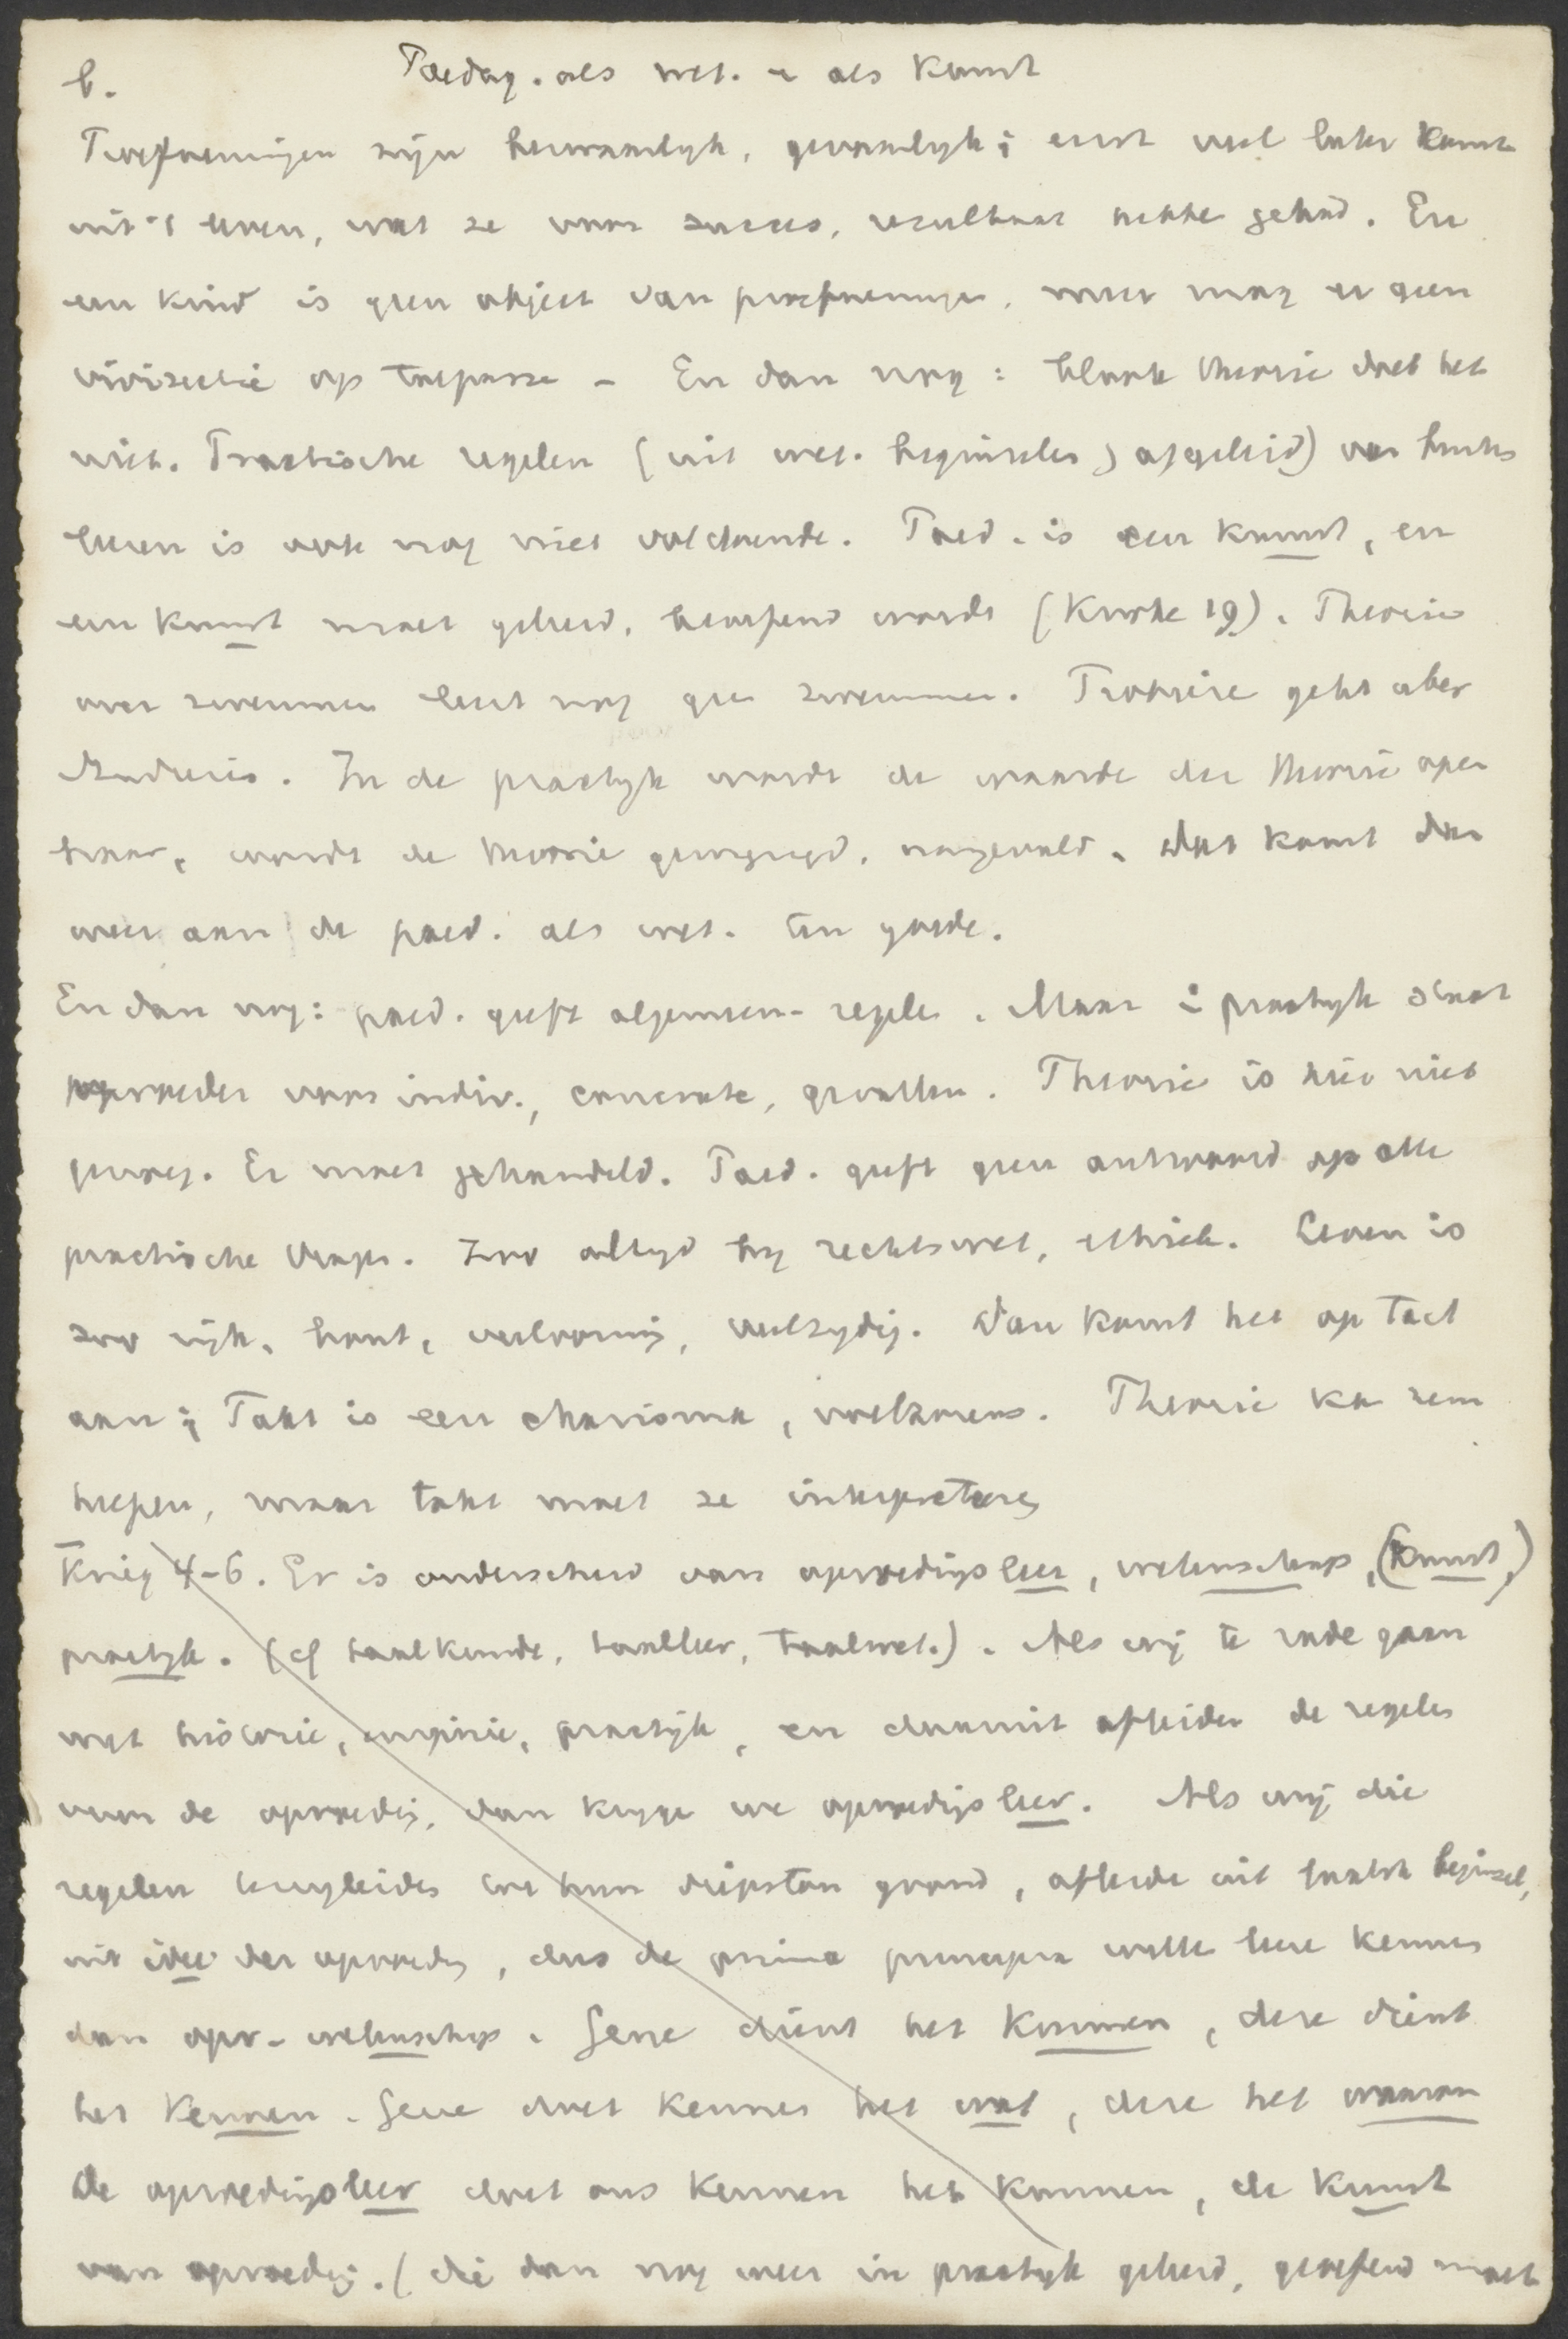 b. Paedag. als wet. – als Kunst
Proefnemingen zijn bezwaarlyk, gevaarlyk; eerst veel later komt
uit 't leven, wat ze voor succes, resultaat hebbe gehad. En
een kind is geen object van proefneminge, men mag er geen
vivisectie op toepasse – En dan nog: bloote theorie doet het
niet. Practische regelen (uit wet. beginselen) afgeleid) van buiten
leeren is ook nog niet voldoende. Paed. is een Kunst, en
een Kunst moet geleerd, beoefend worde (Kuske 19). Theorie
over zwemmen leert nog gee zwemmen. Probiren geht uber
Studiren. In de practyk wordt de waarde der theorie open
baar, wordt de theorie gewyzigd, aangevuld. Dat komt dan
weer aan de paed. als wet. ten goede.
En dan nog: paed. geeft algemeen- regele. Maar i practyk staat
opvoeder voor indiv., concrete, gevallen. Theorie is hier niet
genoeg. Er moet gehandeld. Paed. geeft geen antwoord op alle
practische vrage. Zoo altyd by rechtswet, ethiek. Leven is
zoo ryk, bont, veelvormig, veelzydig. Dan komt het op Tact
aan; Takt is een charisma, veelzins. Theorie ka hem
helpen, maar takt moet ze interpreteeren
Krieg 4-6. Er is onderscheid van opvoedingsleer, wetenschap, (Kunst,)
practyk. (cf taalkunde, taalleer, taalwet.). Als wij te rade gaan
met historie, empirie, practijk, en daaruit afleide de regeles
van de opvoedig, dan kryge we opvoedigsleer. Als wij die
regelen terugleides tot hun diepsten grond, afleide uit laatste beginsel,
uit idee der opvoedig, dus de prima principia wille leere kennes
dan opv- wetenschap. Gene dient het Kunnen, deze dient
het Kennen. Gene doet kennes het wat, deze het waarom
De opvoedigsleer doet ons kennen het kunnen, de Kunst
van opvoedig. (die dan nog weer in practyk geleerd, geoefend moet